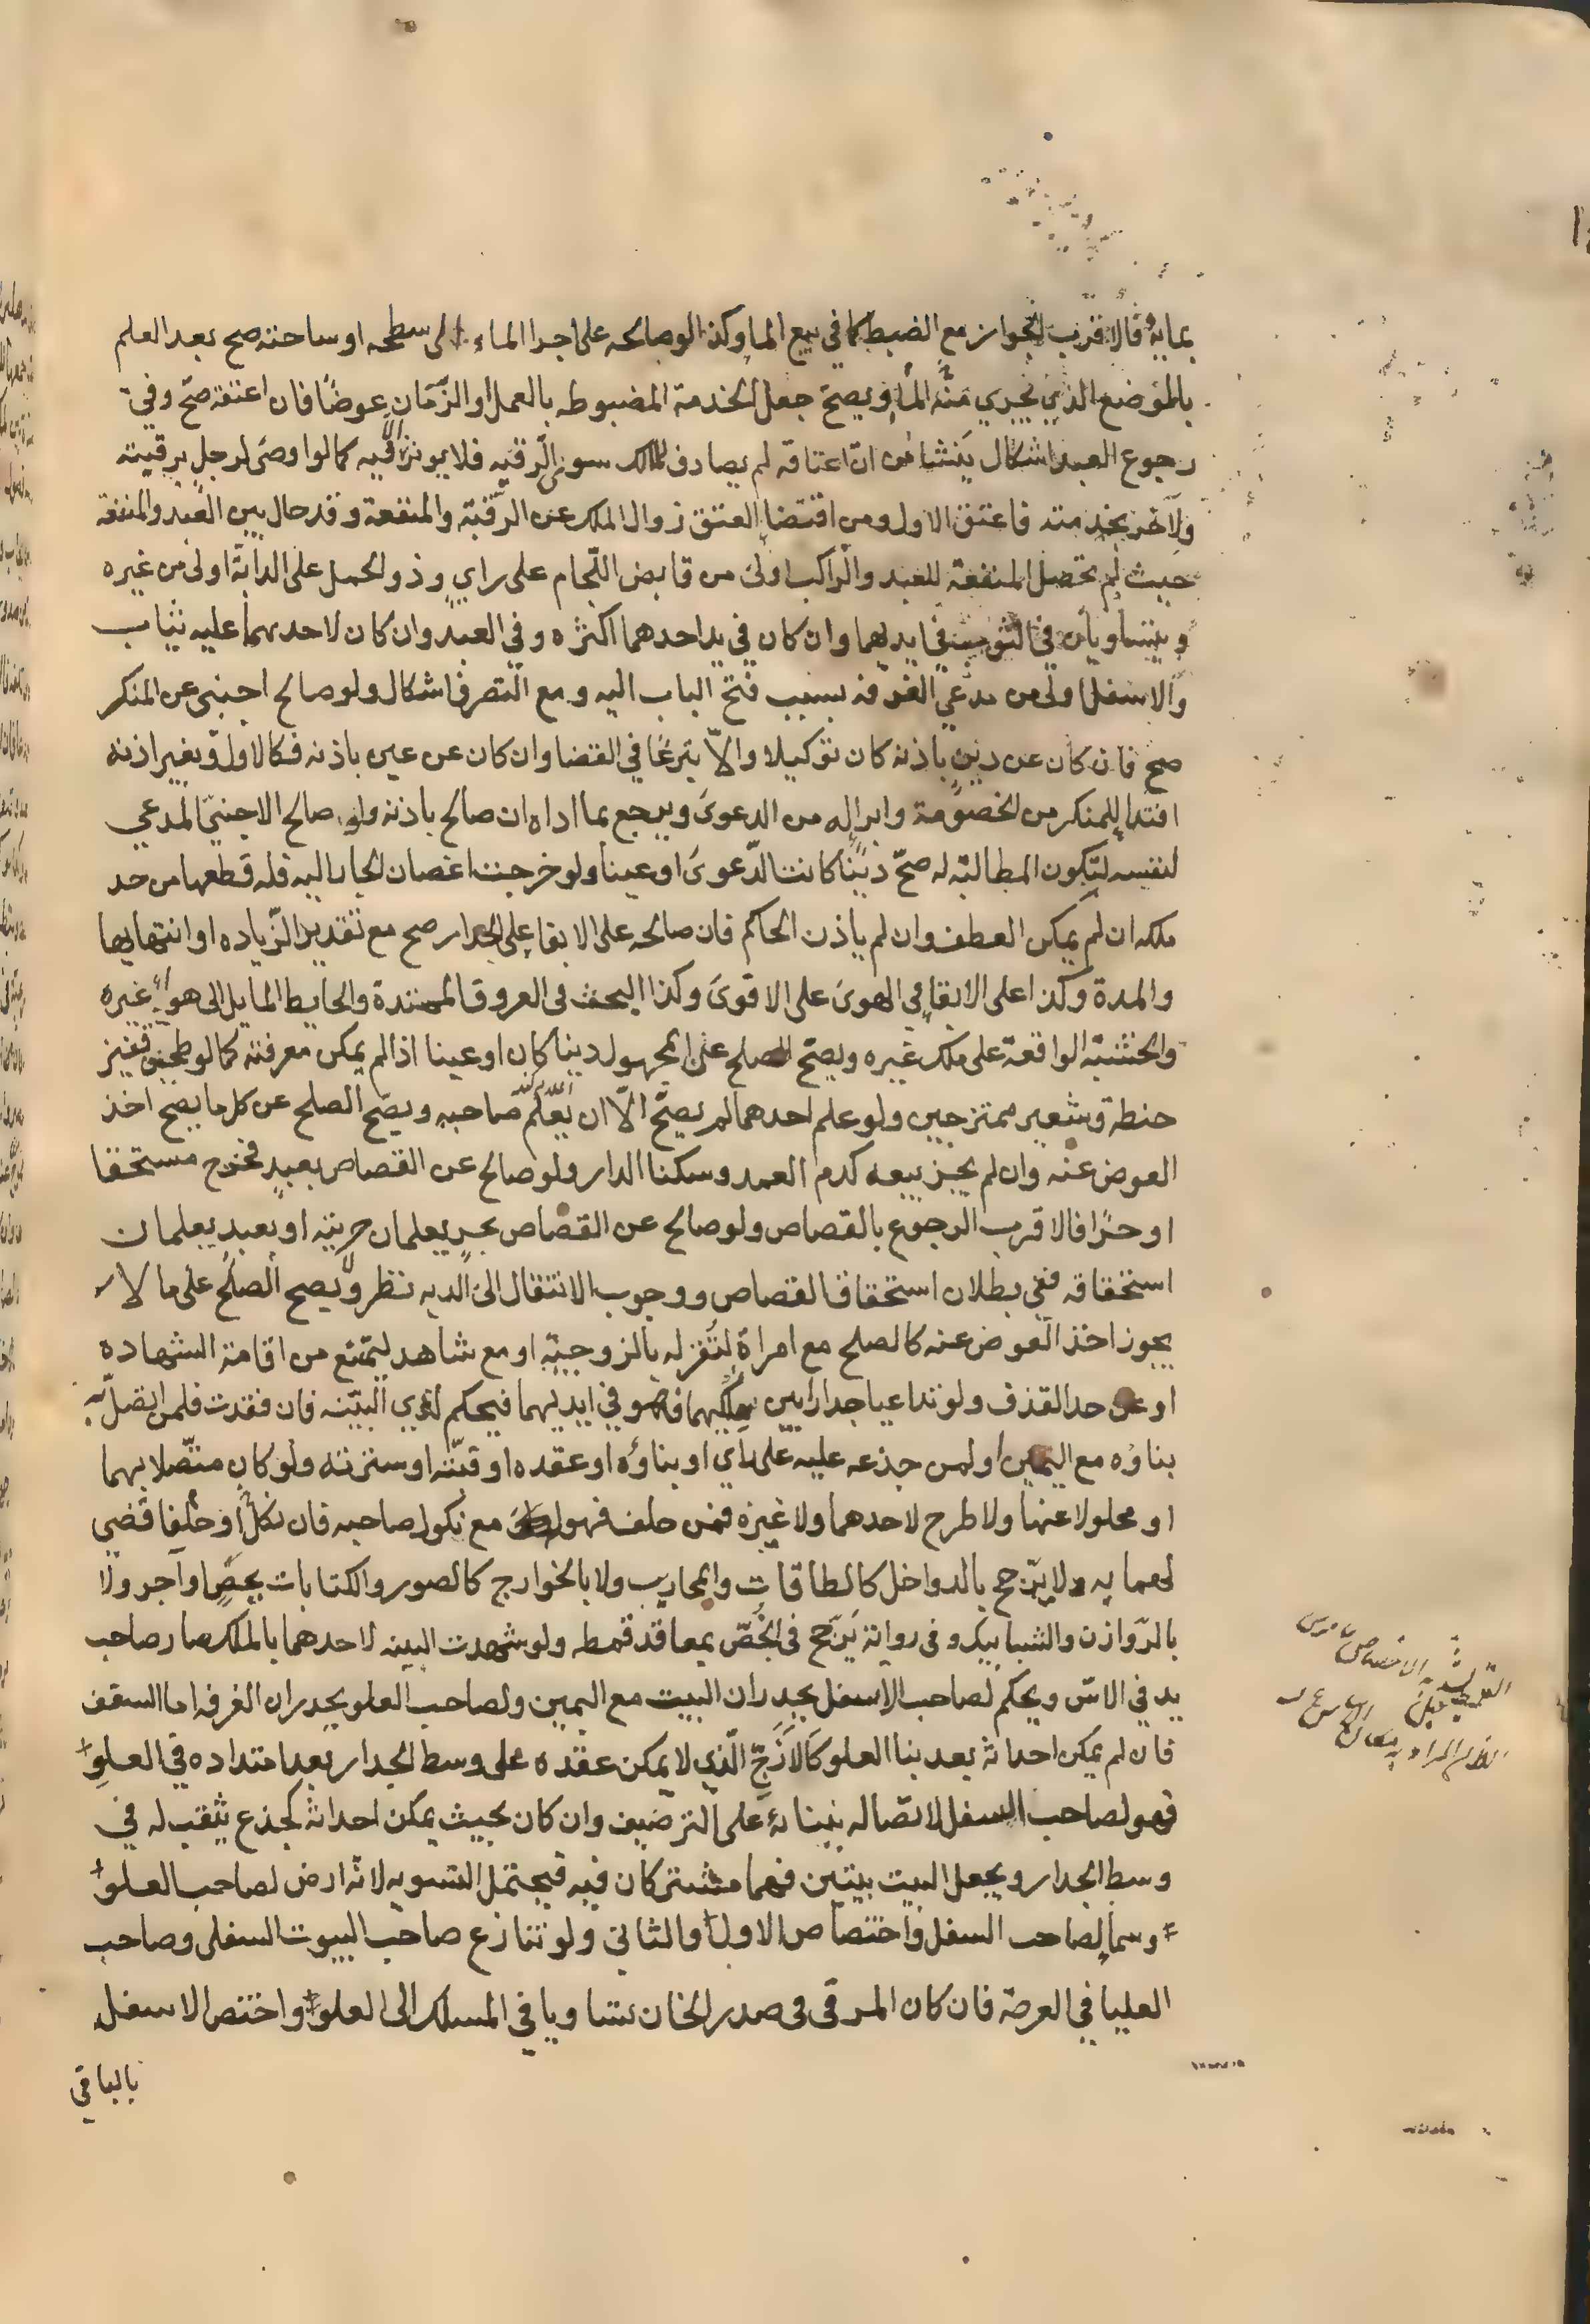 بمايه فالاقرب الجواز مع الضبط كما في بيع الما وكذا لو صالحه على اجرا الماء الى سطحه او ساحته صح بعد العلم
بالموضع الذي يجري منه الما ويصح جعل الخدمة المضبوطه بالعمل او الزمان عوضا فان اعتقه صح وفي
رجوع العبد اشكال ينشا من ان اعتاقه لم يصادف للمالك سوى الرقيه فلا يوثر الا فيه كما لو اوصى لرجل برقبته
ولآخر بخدمته فاعتق الاول ومن اقتضا العتق زوال الملك عن الرقبة والمنفعة وقد حال بين العبد والمنفعة
حيث لم تحصل المنفعة للعبد والراكب اولى من قابض اللجام على راي وذو الحمل على الدابة اولى من غيره
ويتساويان في الثوب في ايديهما وان كان في يد احدهما اكثره وفي العبد وان كان لاحدهما عليه ثياب
والاسفل اولى من مدعي الغرفه بسبب فتح الباب اليه ومع التصرف اشكال ولو صالح اجنبى عن المنكر
صح فان كان عن دين باذنه كان توكيلا والا تبرعا في القضا وان كان عن عين باذنه فكالاول وبغير اذنه
افتدا للمنكر من الخصومة وابرا له من الدعوى ويرجع بما اداه ان صالح باذنه ولو صالح الاجنبي المدعي
لنفسه لتكون المطالبة له صح دينا كانت الدعوى او عينا ولو خرجت اغصان الجار اليه فله قطعها من حد
ملكه ان لم يمكن العطف وان لم ياذن الحاكم فان صالحه على الابقا على الجدار صح مع تقدير الزياده او انتهايها
والمدة وكذا على الابقا في الهوى على الاقوى وكذا البحث في العروق الممتدة والحايط المايل الى هواء غيره
والخشبة الواقعة على ملك غيره ويصح الصلح على المجهول دينا كان او عينا اذا لم يمكن معرفته كما لو طحن قفيز
حنطة وشعير ممتزجين ولو علم احدهما لم يصح الا ان يعلم صاحبه ويصح الصلح عن كل ما يصح اخذ
العوض عنه وان لم يجز بيعه كدم العمد وسكنا الدار ولو صالح عن القصاص بعبد فخرج مستحقا
او حرا فالاقرب الرجوع بالقصاص ولو صالح عن القصاص بحر يعلمان حريته او بعبد يعلمان
استحقاقه ففي بطلان استحقاق القصاص ووجوب الانتقال الى الديه نظر ولا يصح الصلح على ما لا
يجوز اخذ العوض عنه كالصلح مع امراة لتقر له بالزوجية او مع شاهد ليمتنع من اقامة الشهاده
او عن حد القذف ولو تداعيا جدارا بين ملكيهما فهو في ايديهما فيحكم لذي البينه فان فقدت فلمن اتصل به
بناؤه مع اليمين او لمن جذعه عليه على راي او بناؤه او عقده او قبته او سترته ولو كان متصلا بهما
او محلولا عنهما ولا طرح لاحدهما ولا غيره فمن حلف فهو له مع نكول صاحبه فان نكلا او حلفا قضي
لهما به ولا يترجح بالدواخل كالطاقات والمحاريب ولا بالخوارج كالصور والكتابات بجص او آجر ولا
بالروازن والشبابيك وفي رواية يرجح في الخص بمعاقد قمطه ولو شهدت البينه لاحدهما بالملك صار صاحب
يد في الاس ويحكم لصاحب الاسفل بجدران البيت مع اليمين ولصاحب العلو بجدران الغرفه اما السقف
فان لم يمكن احداثه بعد بنا العلو كالازج الذي لا يمكن عقده على وسط الجدار بعد امتداده في العلو
فهو لصاحب السفل لاتصاله ببنائه على الترصيف وان كان بحيث يمكن احداثه كجذع يثقب له في
وسط الجدار ويجعل البيت بيتين فهما مشتركان فيه فيحتمل التسويه لانه ارض لصاحب العلو
وسما لصاحب السفل واختصاص الاول والثاني ولو تنازع صاحب البيوت السفلى وصاحب
العليا في العرصة فان كان المرقى في صدر الخان تساويا في المسلك الى العلو واختص الاسفل
بالباقي